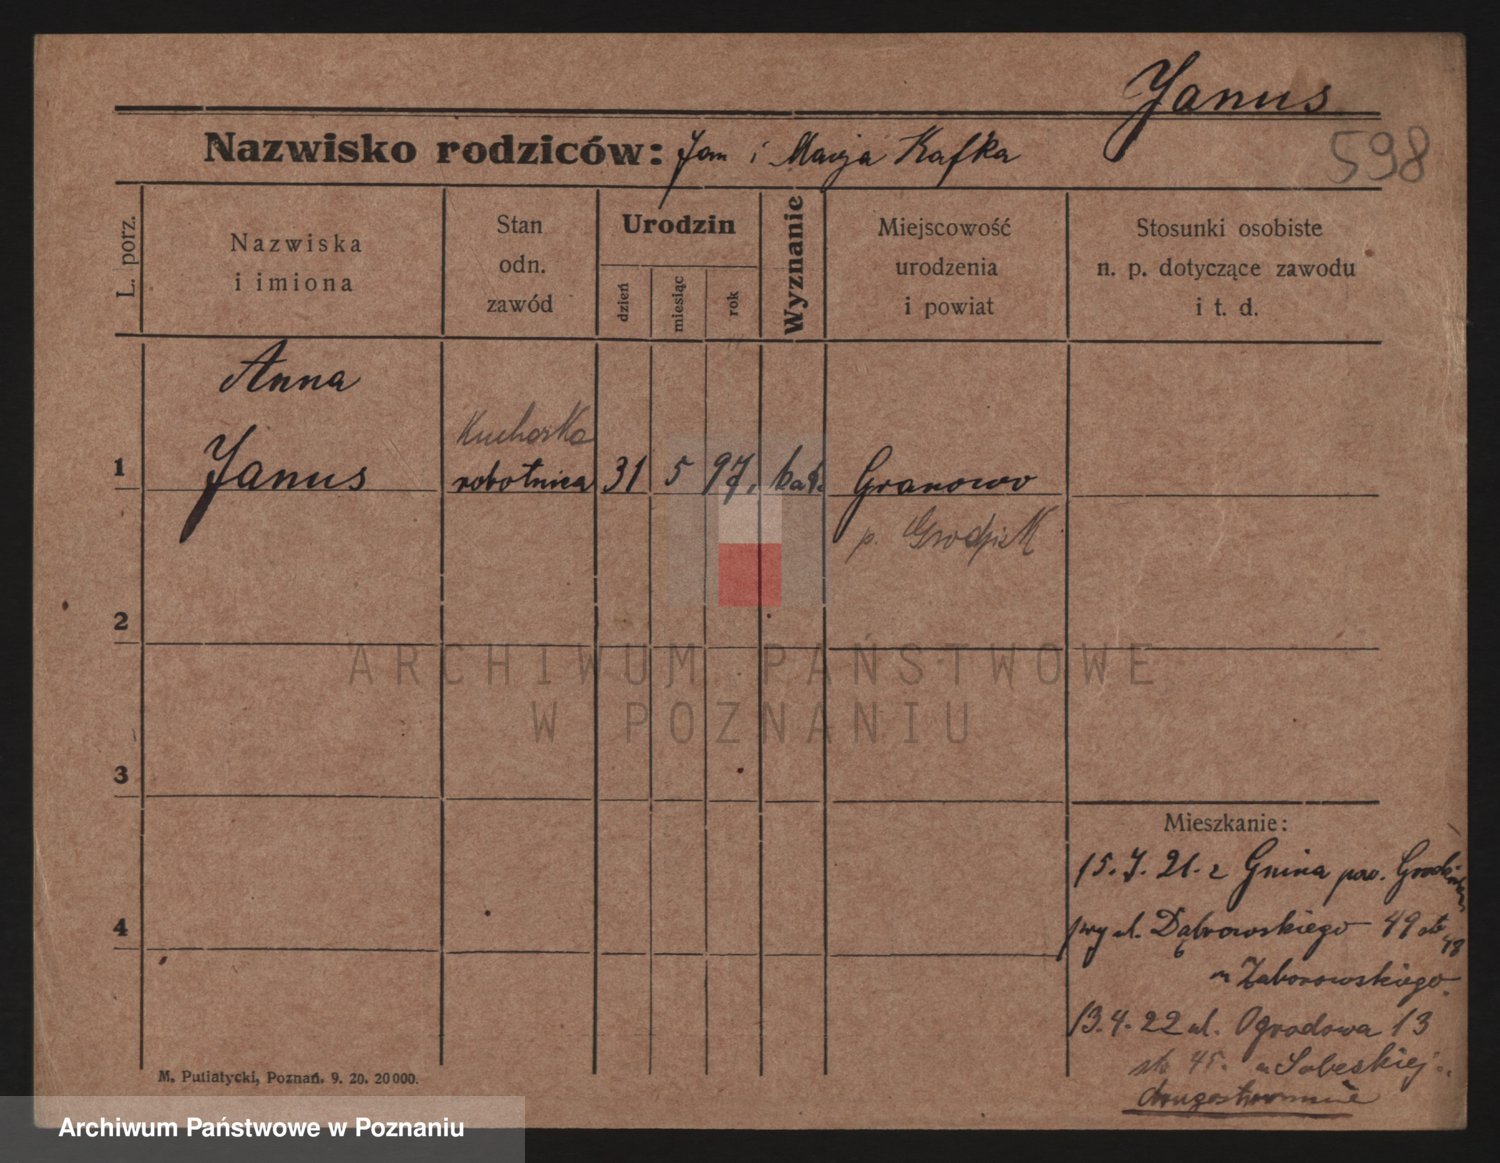 Janus
Nazwisko rodziców: Jan i Marja Kafka
598
L. porz.
Nazwiska
i imiona
Stan
odn.
zawód
Urodzin
dzień
miesiąc
rok
Wyznanie
Miejscowość
urodzenia
i powiat
Stosunki osobiste
n. p. dotyczące zawodu
i t. d.
Anna
Kucharka
1 Janus robotnica 31 5 97. kat. Granowo
p. Grodzisk
2
ARCHIWUM PAŃSTWOWE
W POZNANIU
3
Mieszkanie:
15.7.21. z Gnina pow.
4
przy ul. Dąbrowskiego 49
m Zaborowskiego.
13.4.22 ul. Ogrodowa 13
45. Sobeskiej
drugostronnie
M. Putiatycki, Poznań. 9. 20. 20000.
Archiwum Państwowe w Poznaniu